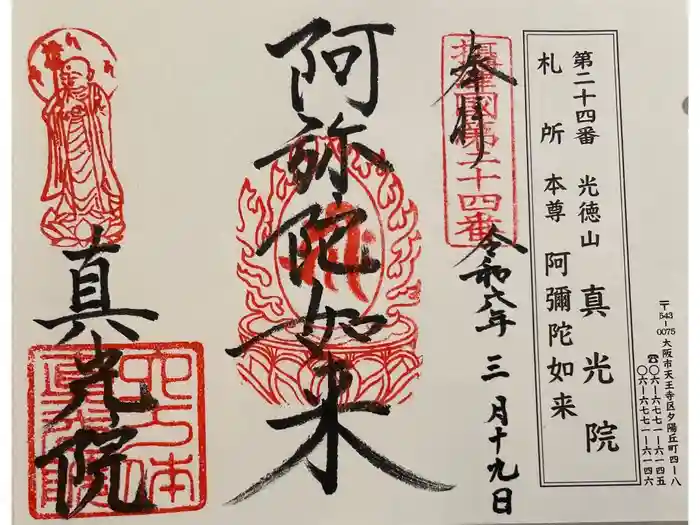 第二十四番 光徳山 真光院
札所本尊 阿彌陀如来
〒543-0075 大阪市天王寺区夕陽丘町四-八
☎〇六-六七七一-六一四五
〇六-六七七一-六一四六
奉拝
摂津國第二十四番
令和八年三月十九日
阿弥陀如来
真光院